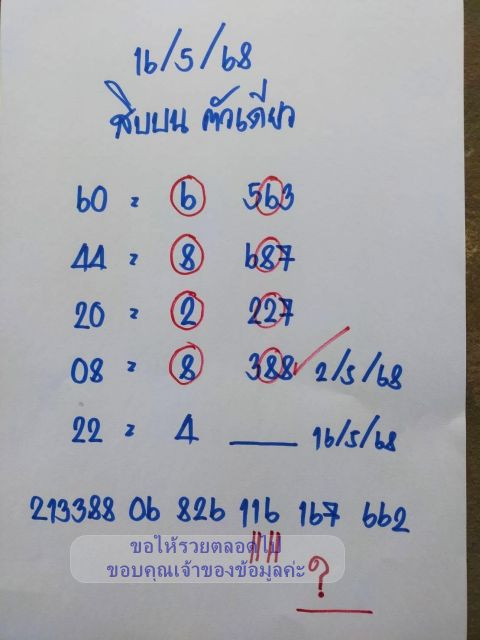 16/5/68
สิบบน ตัวเดียว
60 = 6 563
44 = 8 687
20 = 2 227
08 = 8 388 ✓ 2/5/68
22 = 4 ___ 16/5/68
213388 06 826 116 167 662
ขอให้รวยตลอดไป
ขอบคุณเจ้าของข้อมูลค่ะ
?